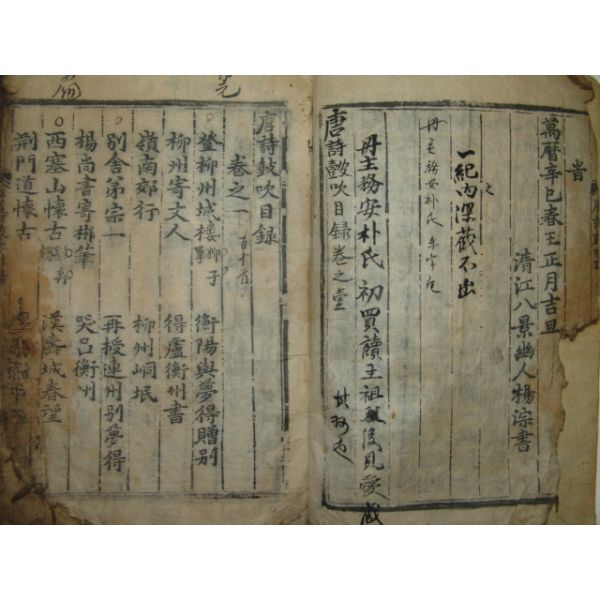 萬曆辛巳春王正月吉旦
清江八景幽人楊淙書
一紀內深藏不出
冊主務安朴氏
冊主務安朴氏初買讀王祖及後見愛藏
唐詩鼓吹目錄卷之壹
唐詩鼓吹目錄
卷之一 百十首
登柳州城樓 衡陽與夢得贈別
柳州寄丈人 得盧衡州書
嶺南郊行 柳州峒氓
別舍弟宗一 再授連州別夢得
楊尚書寄郴筆 哭呂衡州
西塞山懷古 漢壽城春望
荊門道懷古